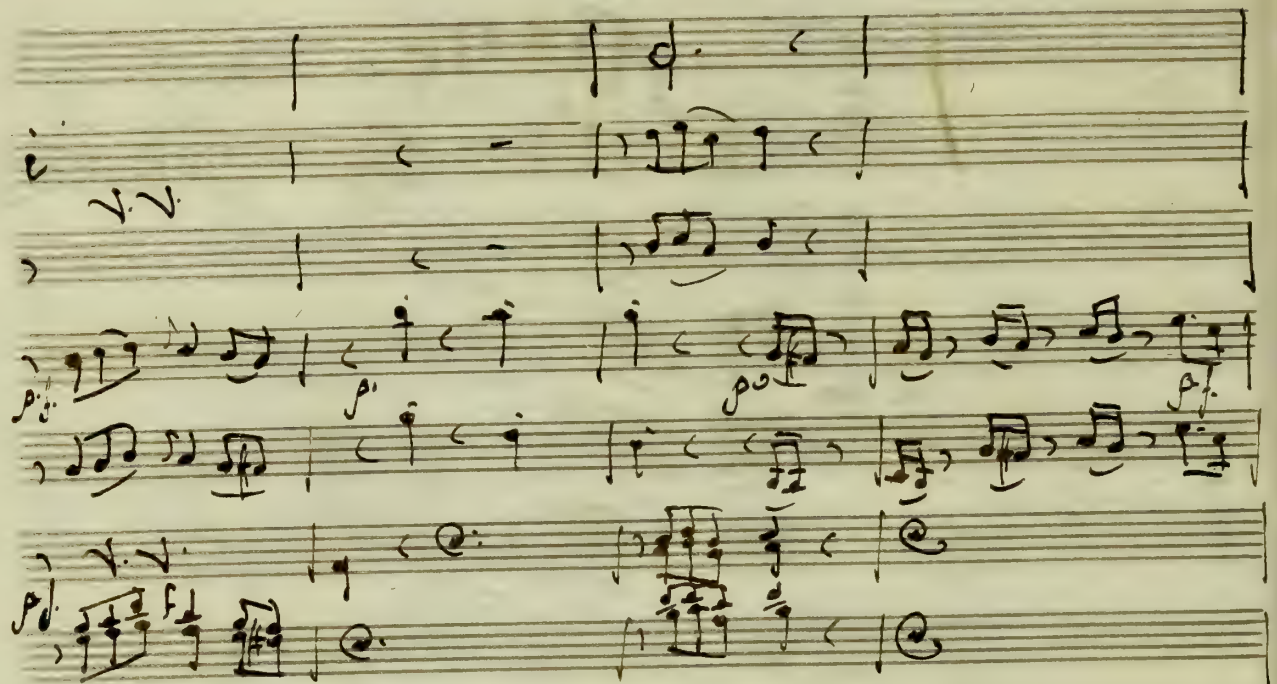 V. V.
p. f.
p.
po
p f.
V. V.
f